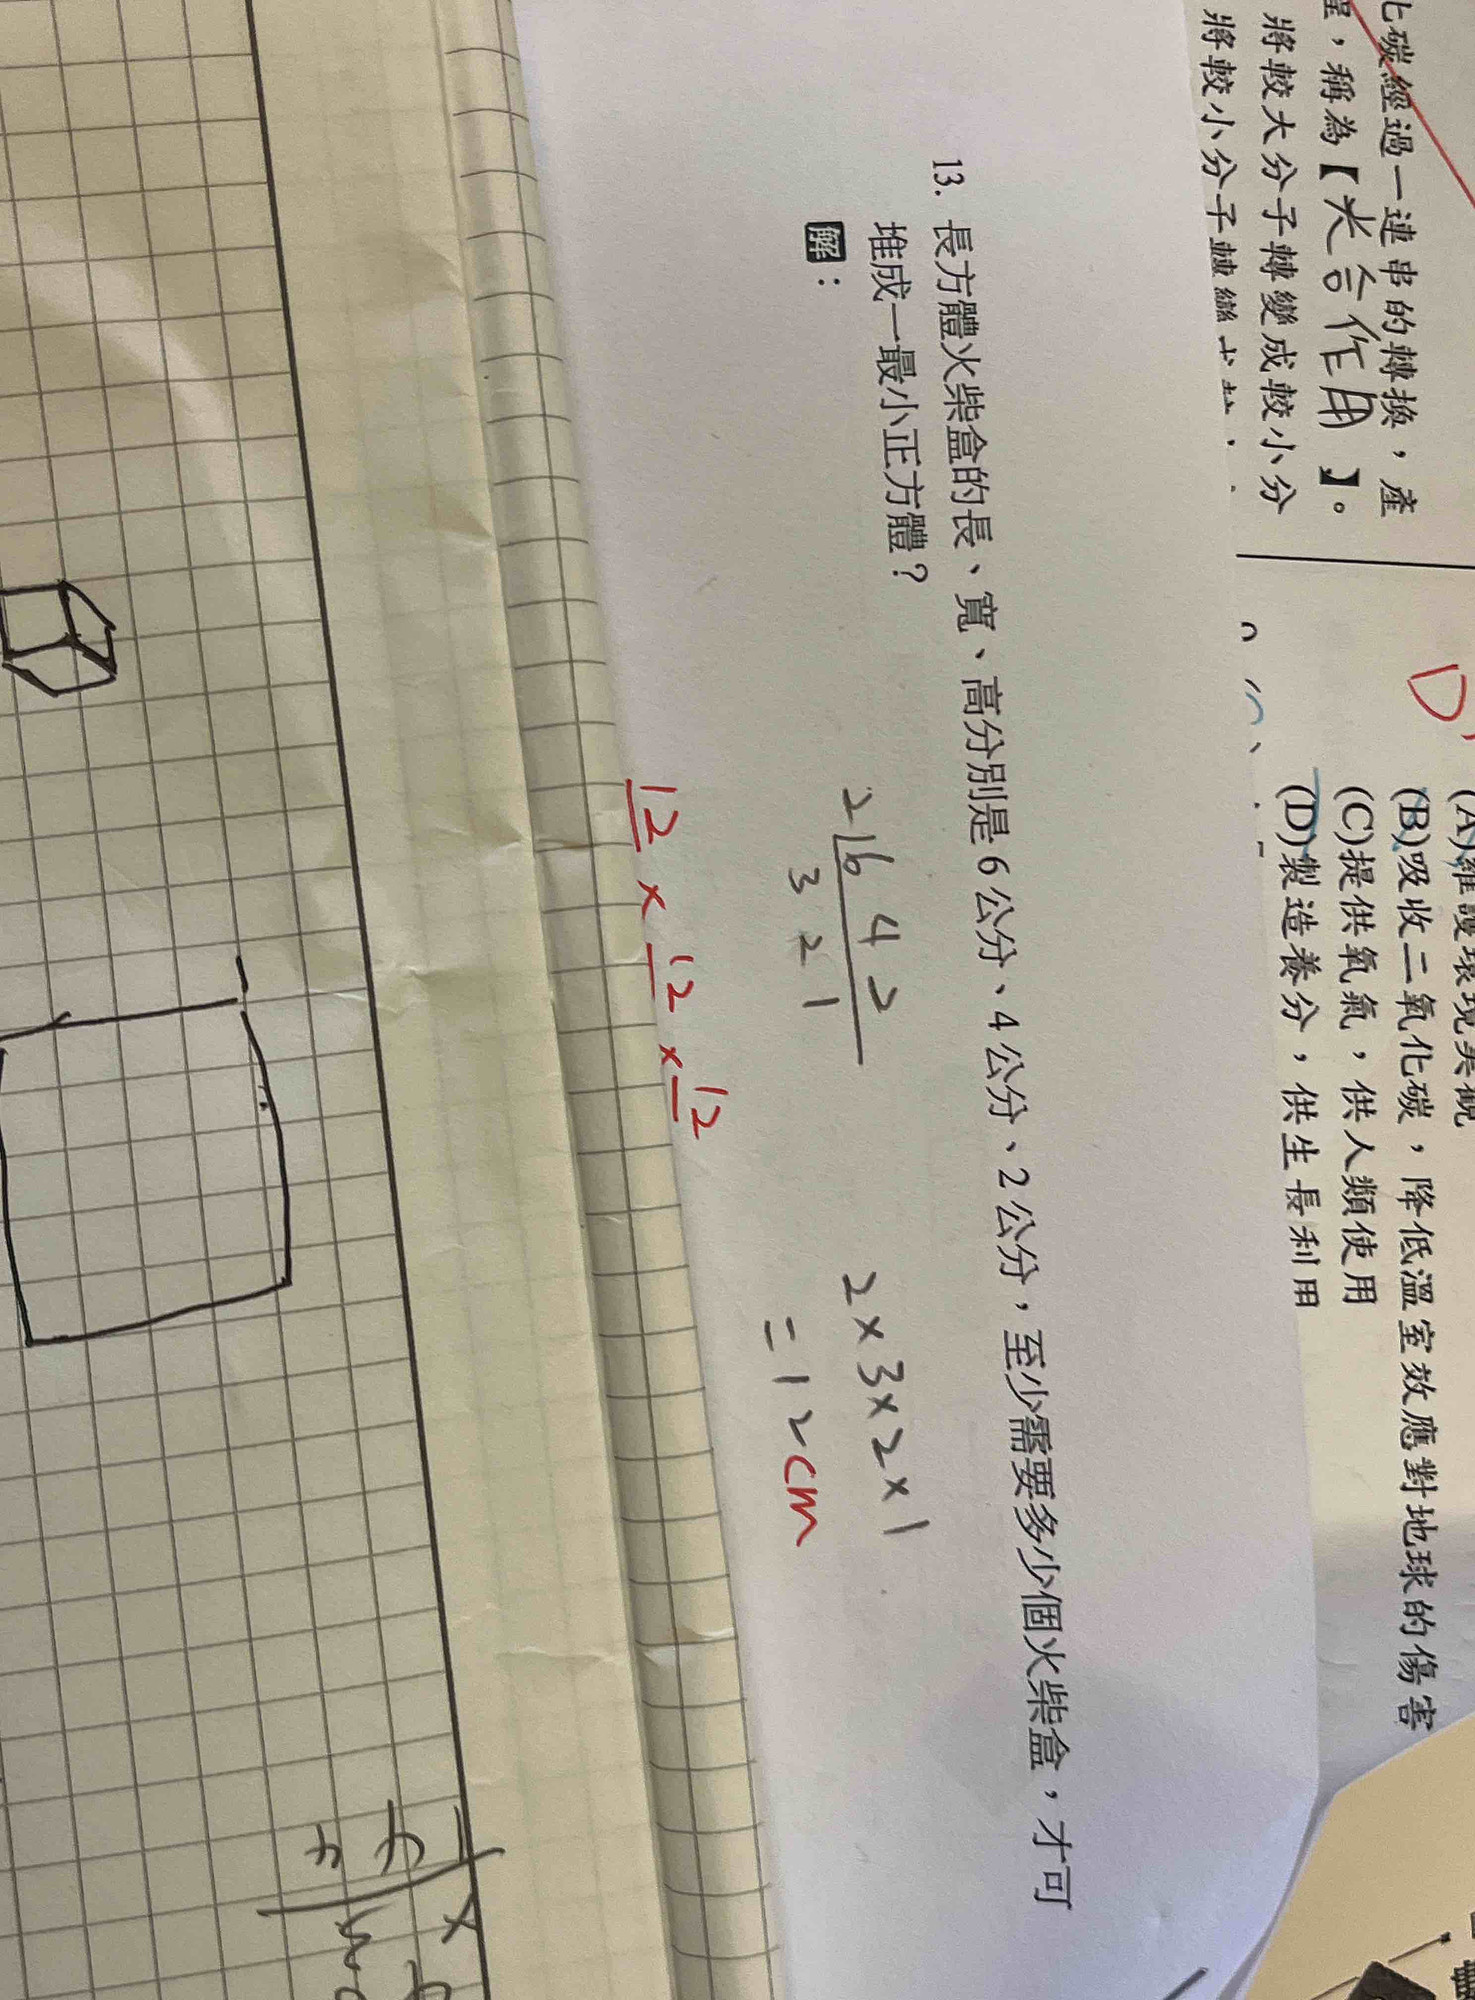 化碳經過一連串的轉換，產
程，稱為【光合作用】。
將較大分子轉變成較小分
將較小分子轉變
D
(A)維護環境美觀
(B)吸收二氧化碳，降低溫室效應對地球的傷害
(C)提供氧氣，供人類使用
(D)製造養分，供生長利用
13. 長方體火柴盒的長、寬、高分別是6公分、4公分、2公分，至少需要多少個火柴盒，才可
堆成一最小正方體？
解：
2 6 4 2
3 2 1
2×3×2×1
=12cm
12×12×12